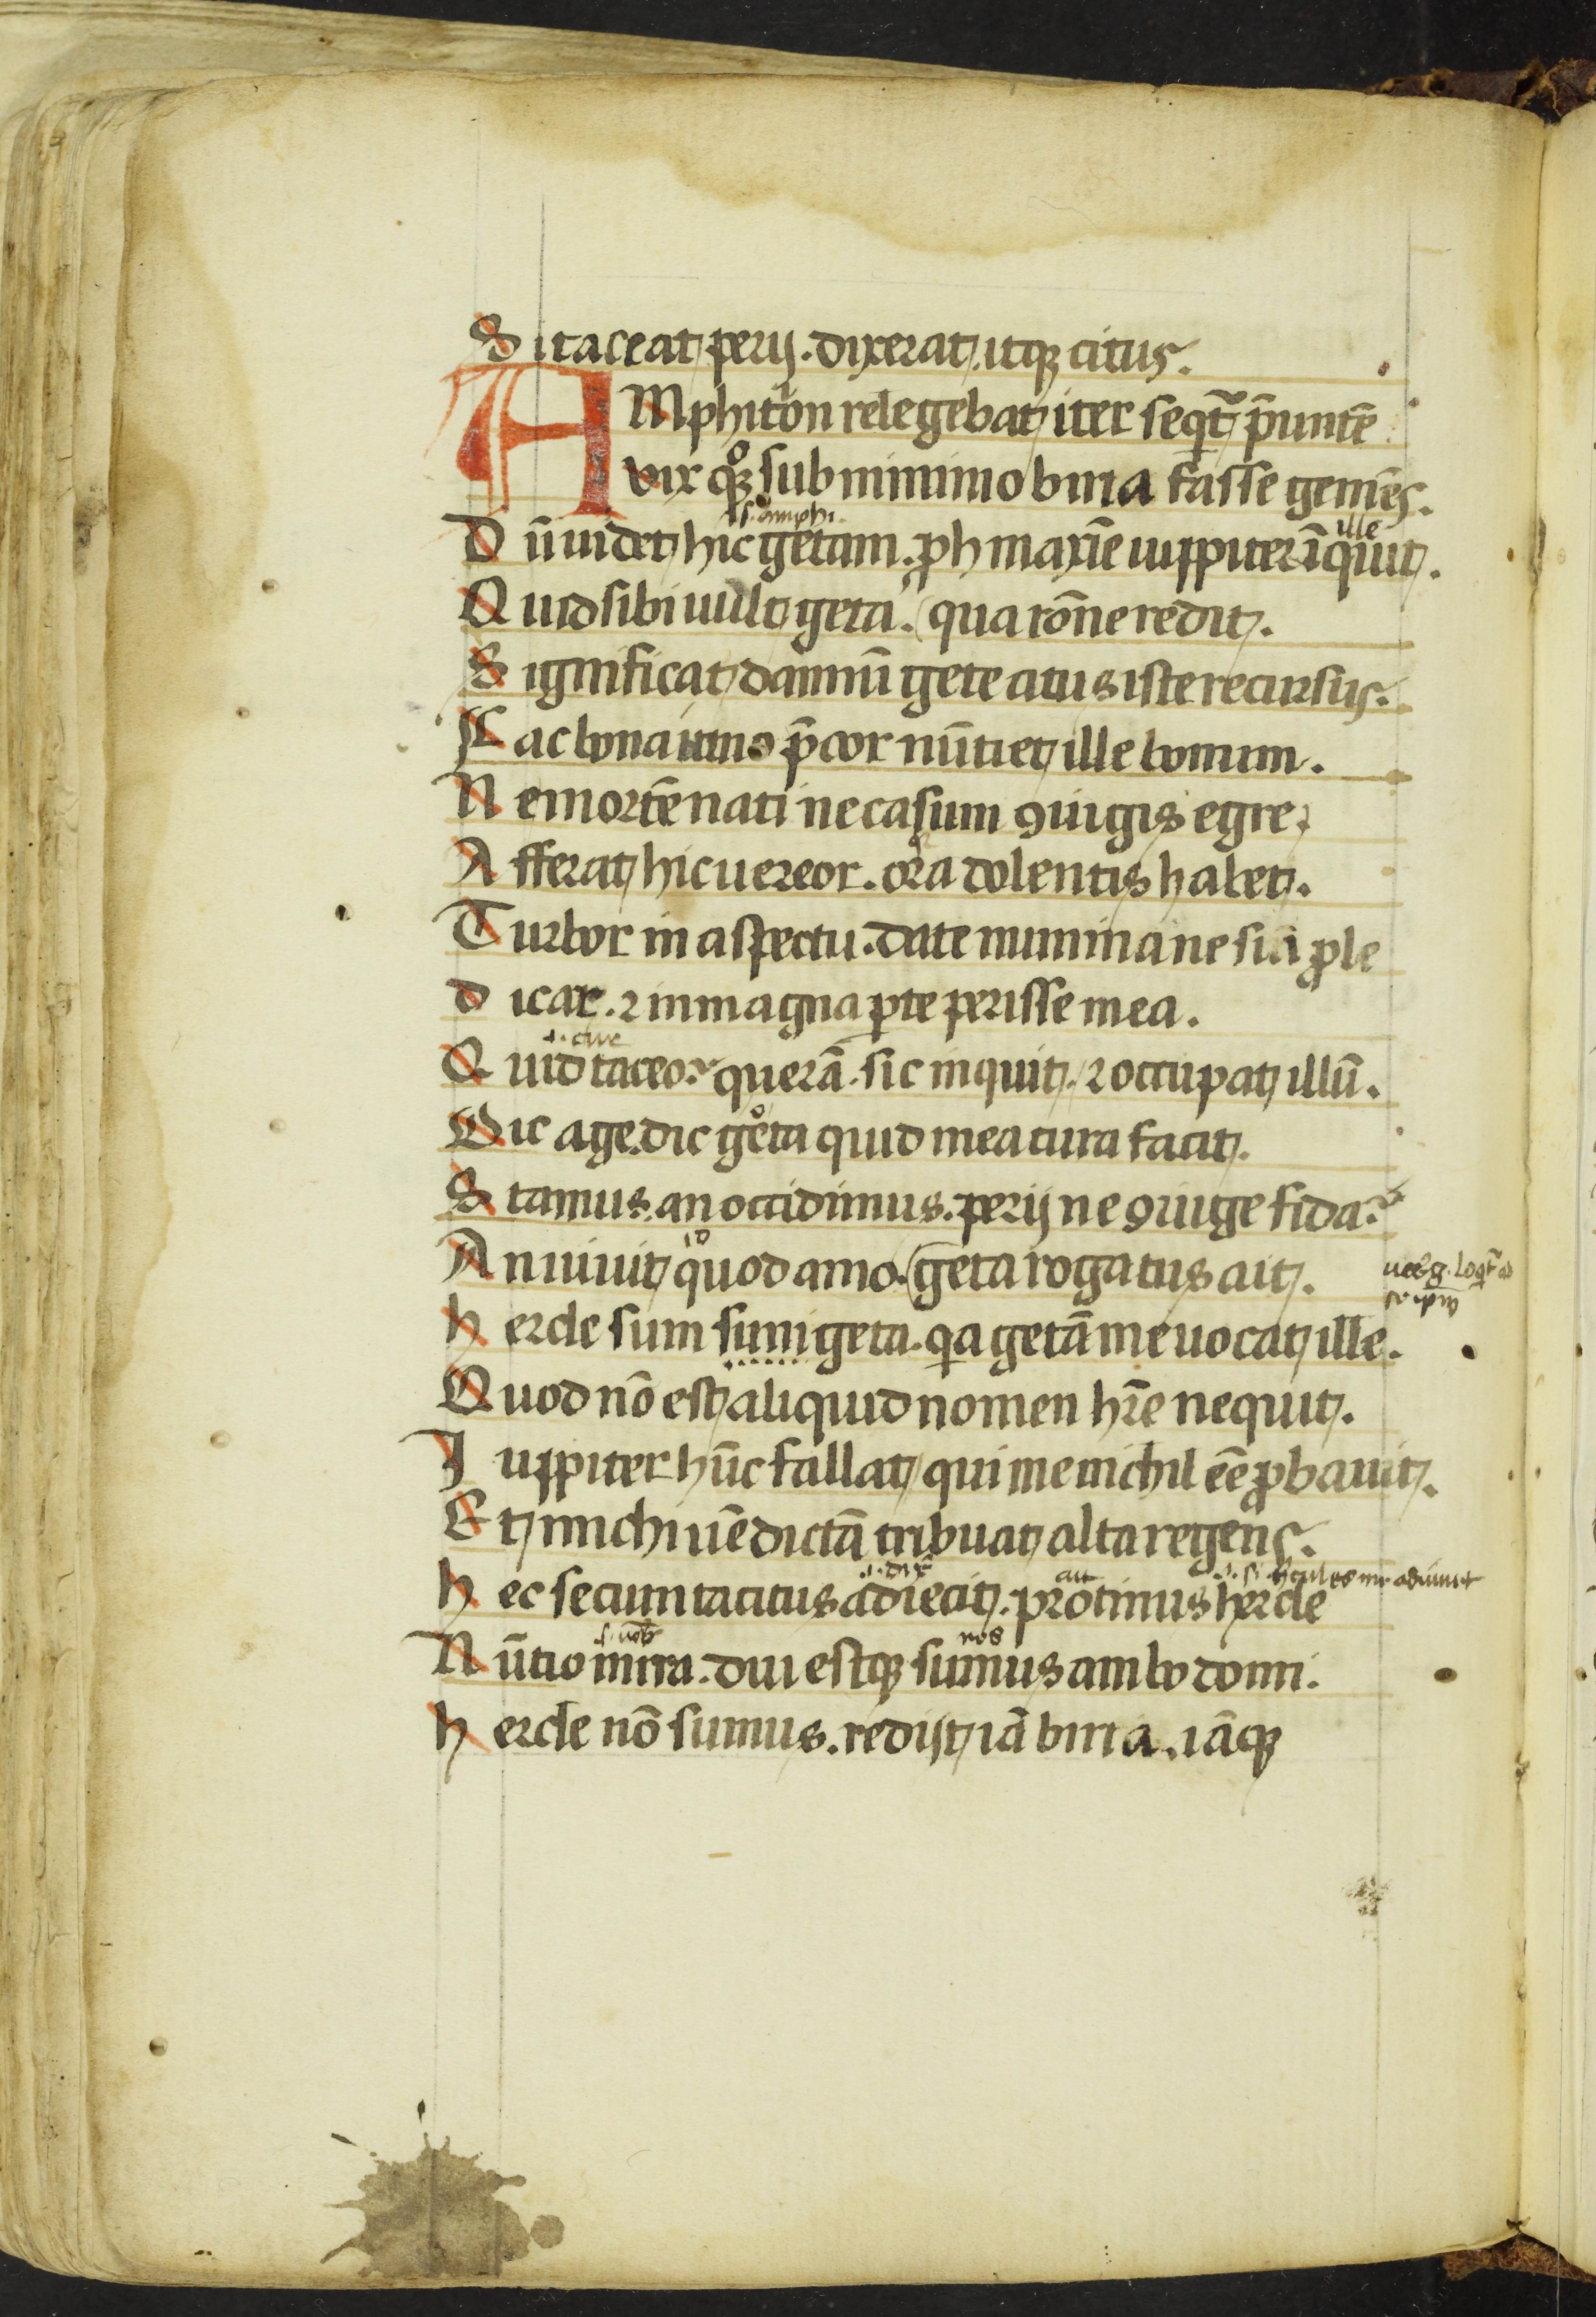 Si taceat perij. dixerat. itqꝫ citus.
AMphitrion relegebat iter seqͭ̃ p̃untẽ
vix qꝫ sub minimo birria fasse gemẽs.
s. amphi. ille
Dũ uidet hic getam. ꝓh maxĩe iuppiter ĩquit.
Quid sibi uult geta. qua rõne redit.
Significat dampnũ gete citus iste recursus.
Fac bona p̃cor nũtiet ille bonum.
Ne mortẽ nati ne casum ꝯiugis egre
Afferat hic uereor. ora dolentis habet.
Turbor in aspectu. date numina ne sin ꝓle
dicar. ⁊ in magna ꝑte perisse mea.
Quid taceo? querã. sic inquit. ⁊ occupat illũ.
Dic age. dic geta quid mea cura facit.
Stamus. an occidimus. perij ne ꝯiuge fida?
id
An uiuit quod amo. geta rogatus ait.
hercle sum sum geta. qa getã me uocat ille.
Quod nõ est aliquid nomen hr̃e nequit.
Iuppiter hũc fallat qui me nichil eẽ ꝓbauit.
Et michi uẽdictã tribuat alta regens.
i. dix̃ ait
hec secum tacitus adiecit. protinus hercle
s. uob̃ nos
Nũtio mira. dui estqꝫ sumus ambo domi.
hercle nõ sumus. redist iã birria. iãqꝫ